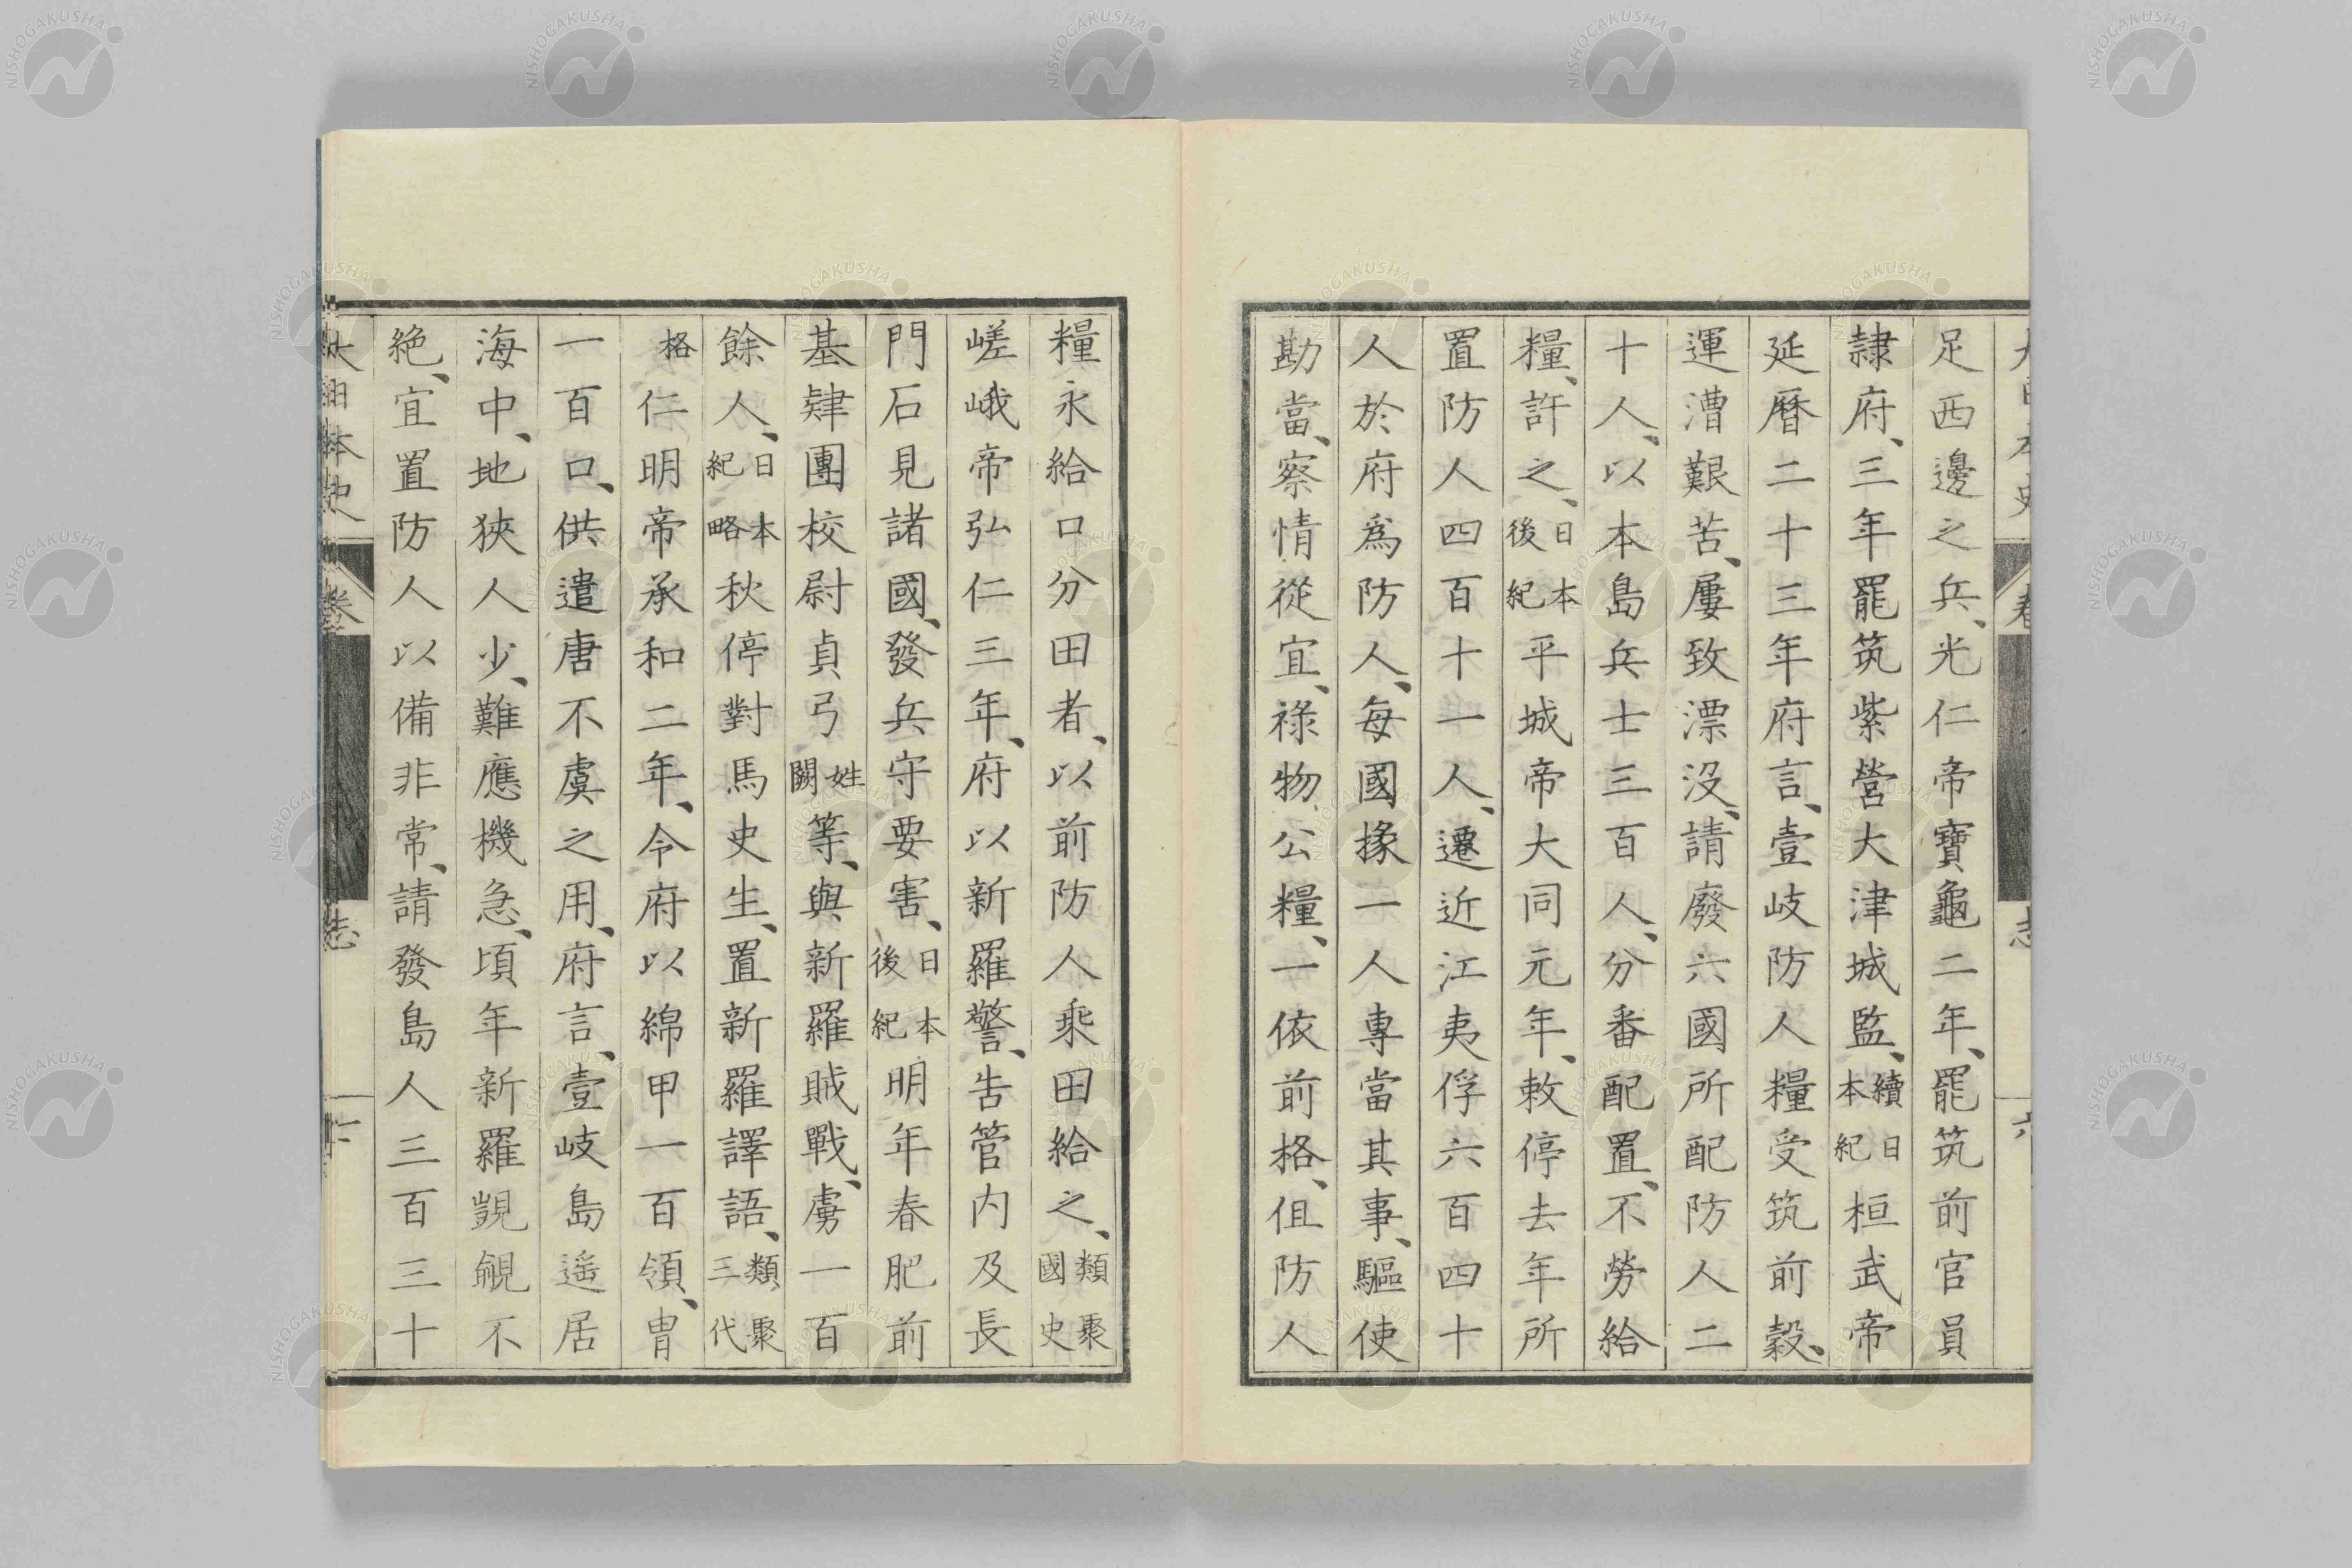 足西邊之兵、光仁帝寶龜二年、罷筑前官員
隷府、三年罷筑紫營大津城監、續日本紀桓武帝
延曆二十三年府言、壹岐防人糧受筑前穀、
運漕艱苦、屢致漂沒、請廢六國所配防人二
十人、以本島兵士三百人、分番配置、不勞給
糧、許之、日本後紀平城帝大同元年、敕停去年所
置防人四百十一人、遷近江夷俘六百四十
人於府爲防人、每國掾一人專當其事、驅使
勘當、察情從宜、祿物公糧、一依前格、但防人
糧永給口分田者、以前防人乘田給之、類聚國史
嵯峨帝弘仁三年、府以新羅警、告管内及長
門石見諸國、發兵守要害、日本後紀明年春肥前
基肄團校尉貞弓姓闕等、與新羅賊戰、虜一百
餘人、日本紀略秋停對馬史生、置新羅譯語、類聚三代
格仁明帝承和二年、令府以綿甲一百領、冑
一百口、供遣唐不虞之用、府言、壹岐島遥居
海中、地狹人少、難應機急、頃年新羅覬覦不
絶、宜置防人以備非常、請發島人三百三十
卷
志